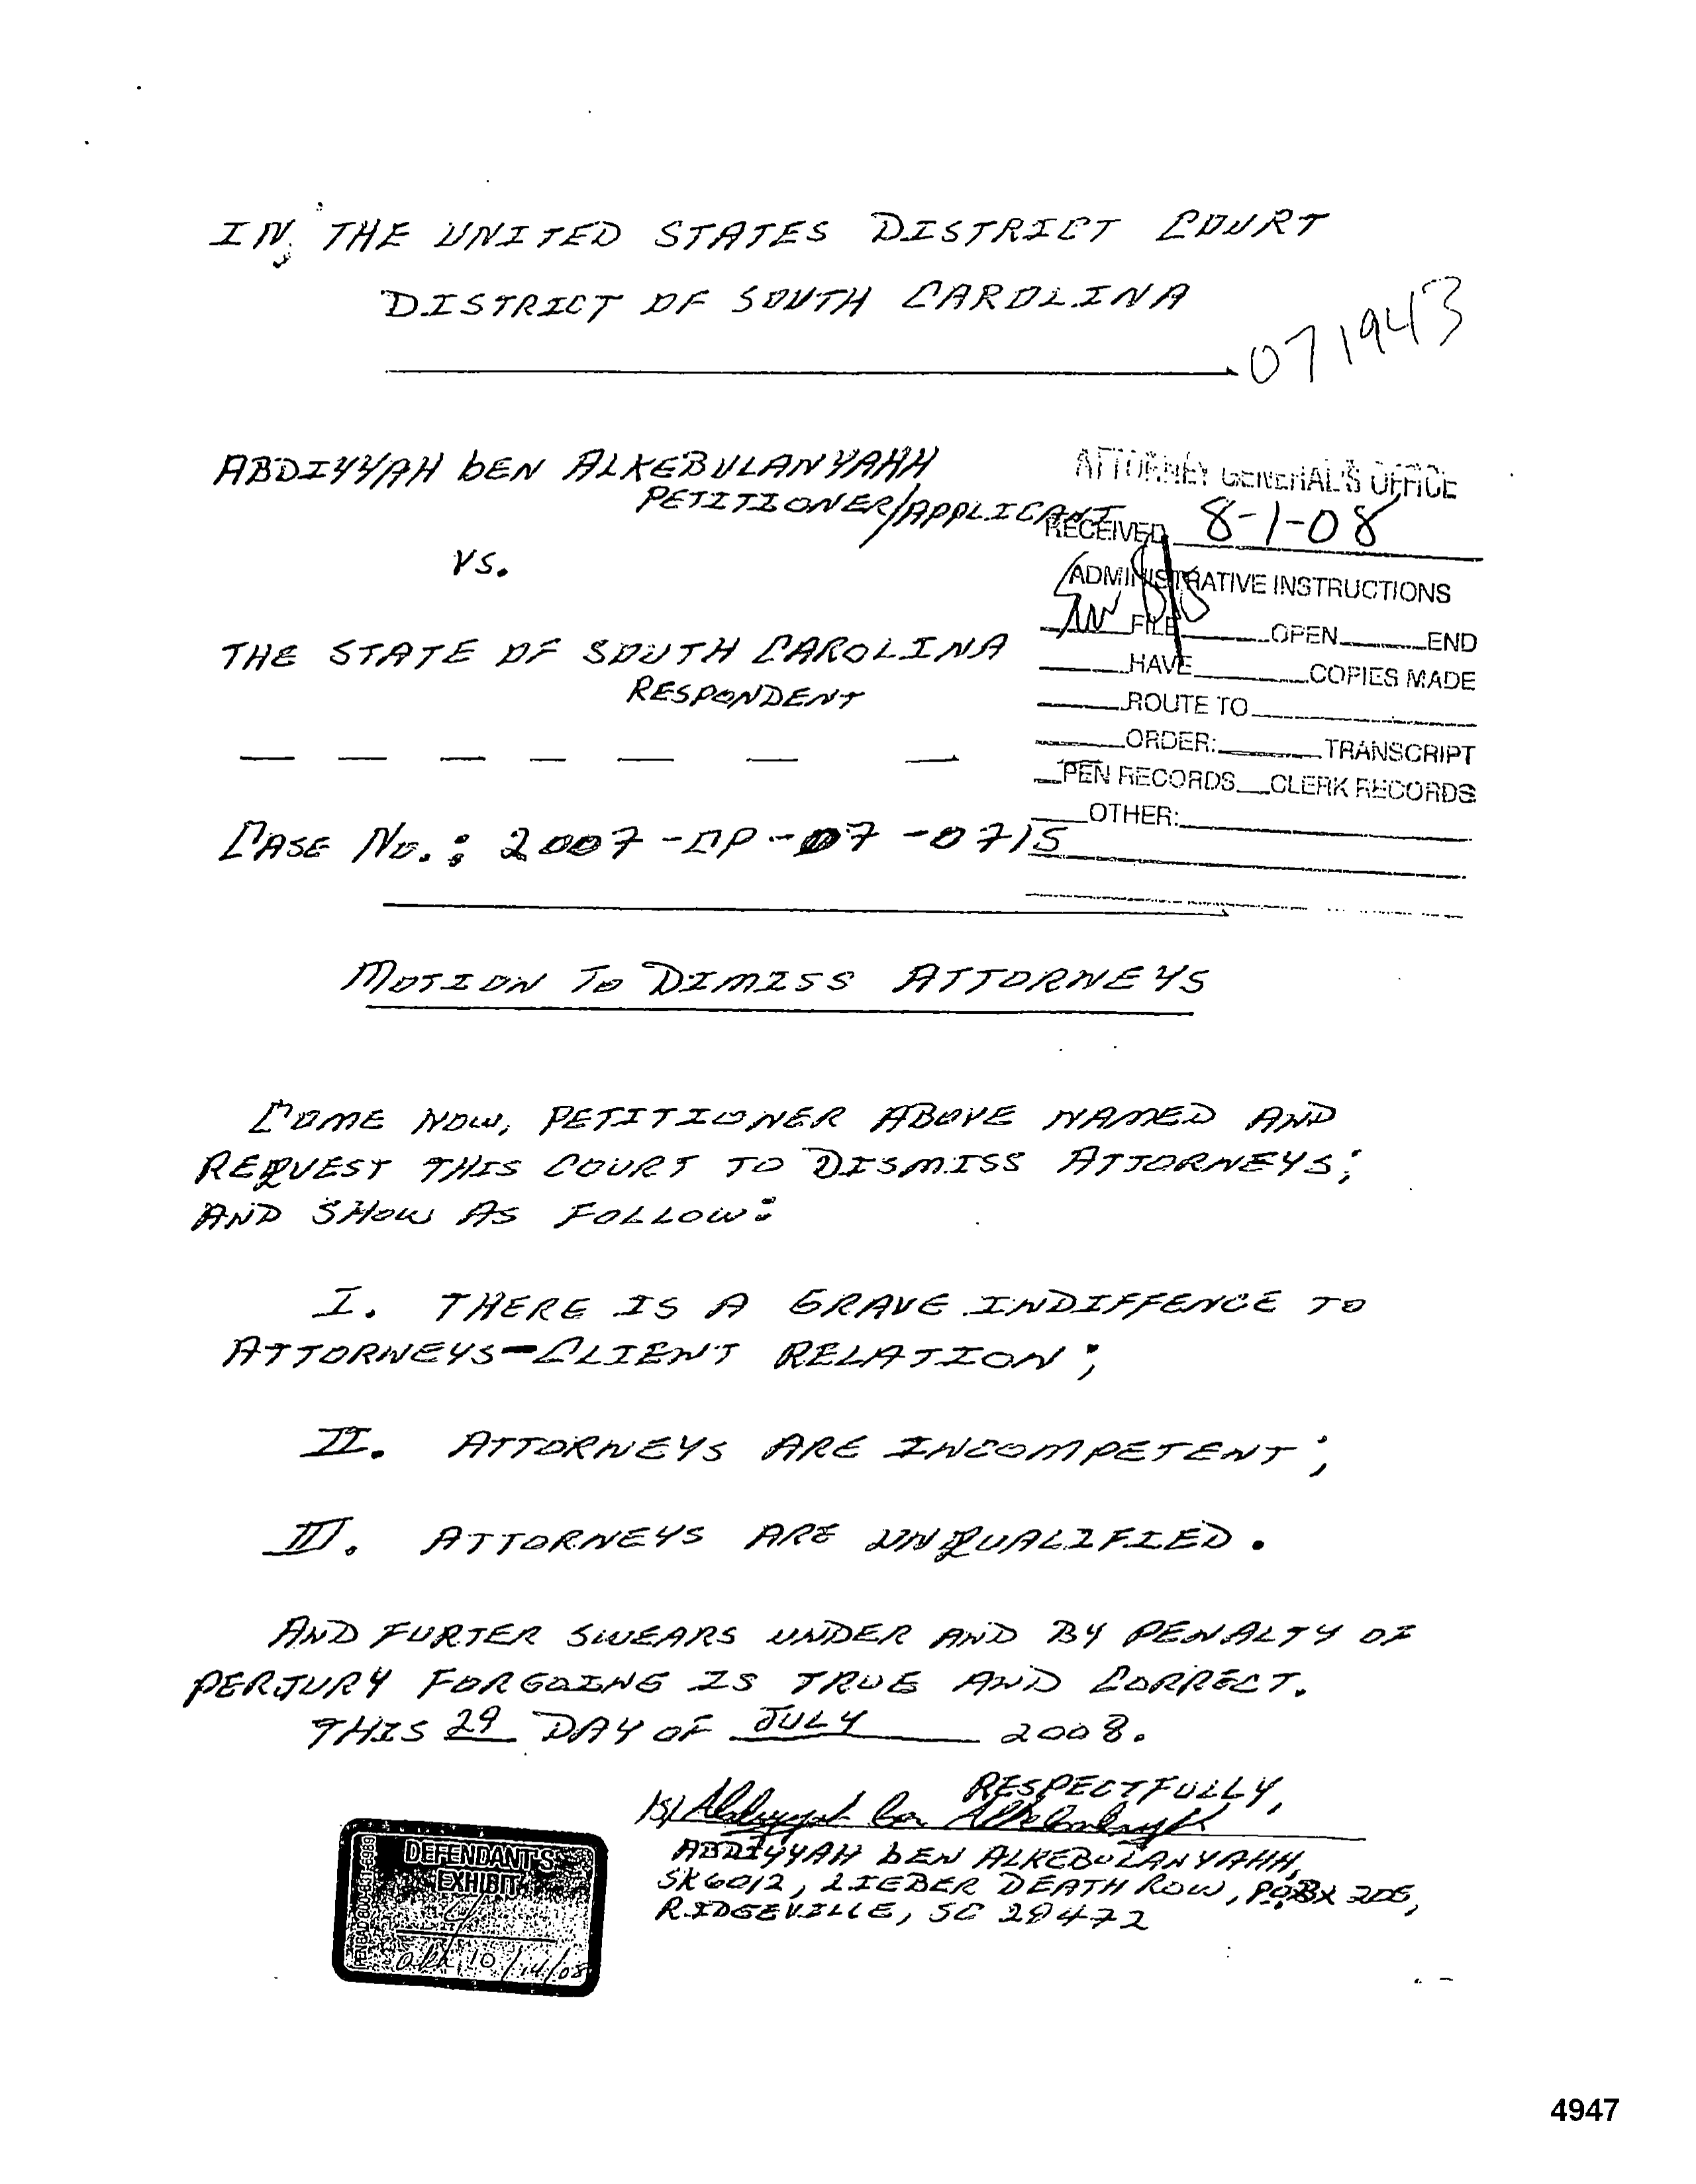 IN THE UNITED STATES DISTRICT COURT
DISTRICT OF SOUTH CAROLINA
071943
ABDIYYAH bEN ALKEBULANYAHH
PETITIONER/APPLICANT
VS.
THE STATE OF SOUTH CAROLINA
RESPONDENT
ATTORNEY GENERAL'S OFFICE
RECEIVED 8-1-08
ADMINISTRATIVE INSTRUCTIONS
FILE OPEN END
HAVE COPIES MADE
ROUTE TO
ORDER: TRANSCRIPT
PEN RECORDS CLERK RECORDS
OTHER:
CASE NO.: 2007-CP-07-0715
MOTION TO DIMISS ATTORNEYS
COME NOW, PETITIONER ABOVE NAMED AND
REQUEST THIS COURT TO DISMISS ATTORNEYS;
AND SHOW AS FOLLOW:
I. THERE IS A GRAVE INDIFFENCE TO
ATTORNEYS-CLIENT RELATION;
II. ATTORNEYS ARE INCOMPETENT;
III. ATTORNEYS ARE UNQUALIFIED.
AND FURTER SWEARS UNDER AND BY PENALTY OF
PERJURY FORGOING IS TRUE AND CORRECT.
THIS 29 DAY OF JULY 2008.
RESPECTFULLY,
/S/ Abdiyyah ben Alkebulanyahh
ABDIYYAH bEN ALKEBULANYAHH,
SK6012, LIEBER DEATH ROW, P.O.BX 205,
RIDGEVILLE, SC 29472
DEFENDANT'S
EXHIBIT
10/14/08
4947